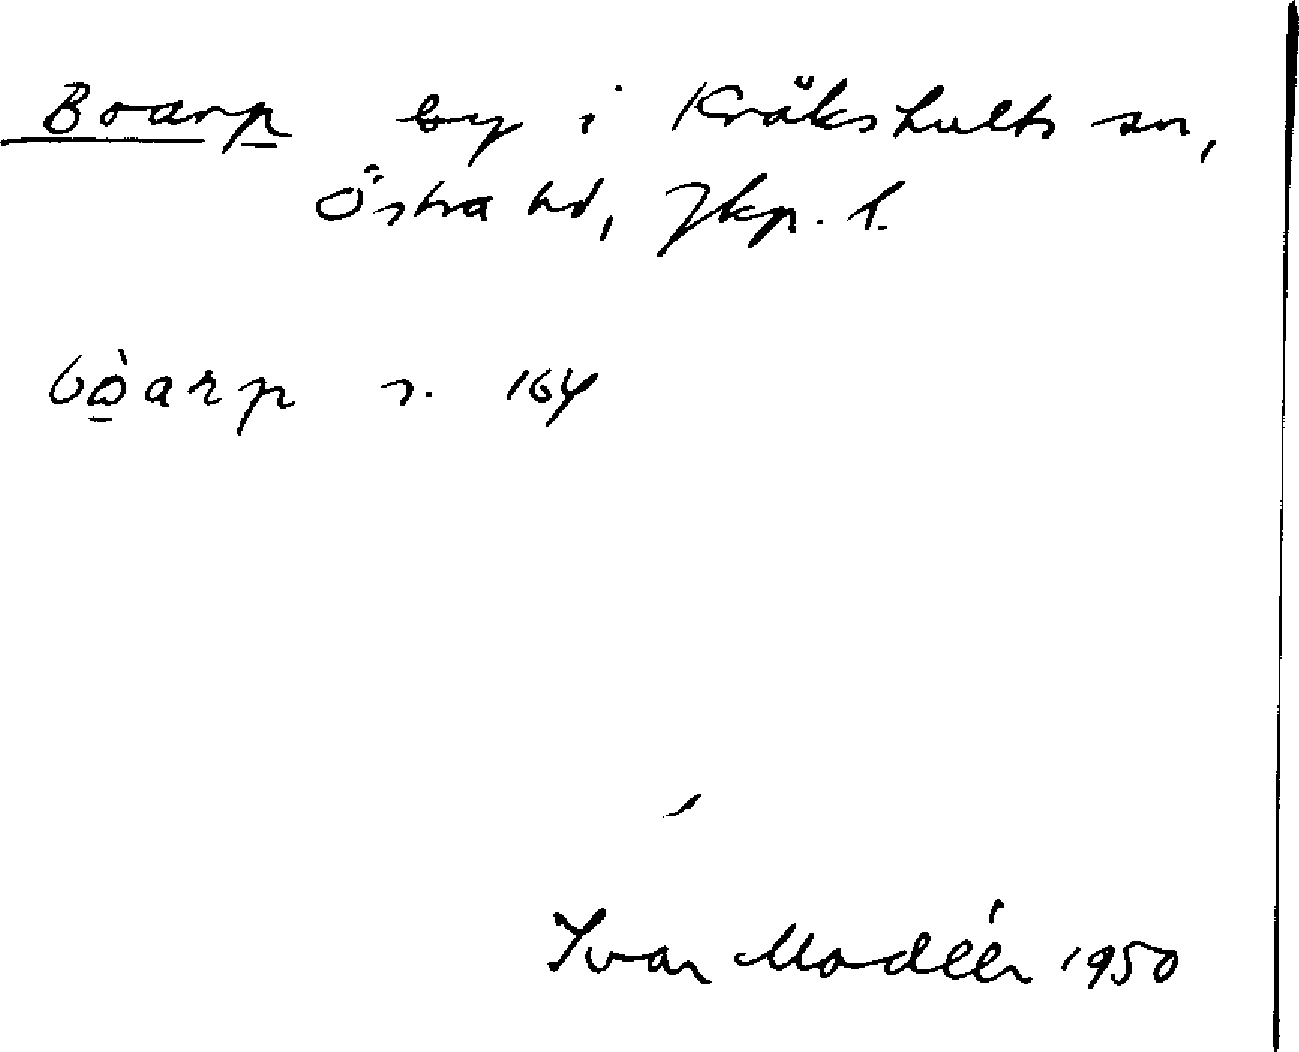 Boarp by i Kråkshults sn,
Östra hd, Jkp. l.
bò̱arp s. 164
Ivar Modéer 1950